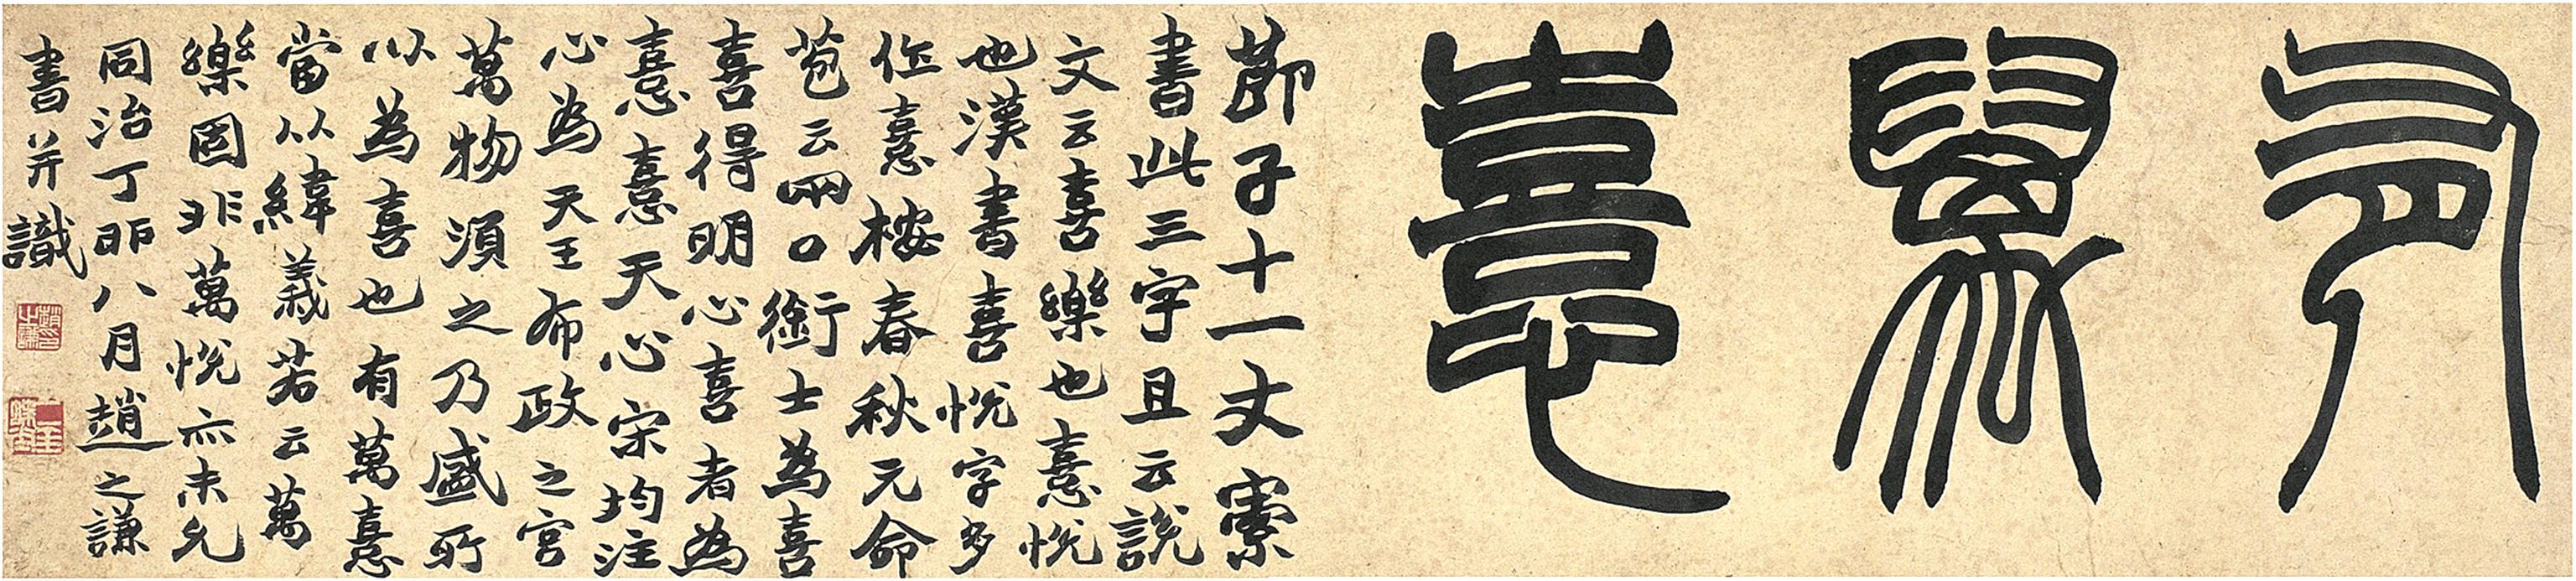 有萬憙
節子十一丈索
書此三字且云說
文云喜樂也憙悅
也漢書喜悅字多
作憙桉春秋元命
苞云兩口銜士為喜
喜得明心喜者為
憙憙天心宋均注
心為天王布政之宮
萬物須之乃盛所
以為喜也有萬憙
當以緯義若云萬
樂固非萬悅亦未允
同治丁卯八月趙之謙
書并識